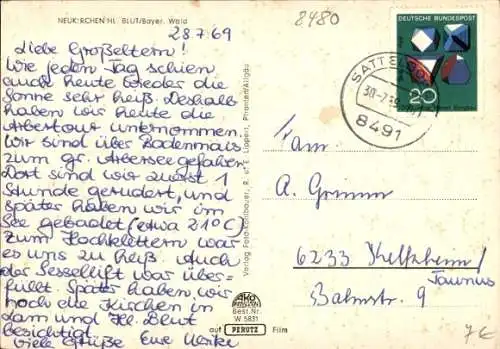 NEUKIRCHEN HL. BLUT/Bayer. Wald
8480
28.7.69
Liebe Großeltern!
Wie jeden Tag schien
auch heute wieder die
Sonne sehr heiß. Deshalb
haben wir heute die
Arbertour unternommen.
Wir sind über Bodenmais
zum gr. Arbersee gefahren.
Dort sind wir zuerst 1
Stunde gerudert, und
später haben wir im
See gebadet (etwa 21°C)
Zum Hochklettern war
es uns zu heiß. Auch
der Sessellift war über-
füllt. Später haben wir
noch die Kirchen in
Lam und Hl. Blut
besichtigt.
Viele Grüße Eure Ulrike
Verlag Foto-Kohlbauer, R. u. E. Lippert, Pfronten/Allgäu
AKO
Best.Nr.
W 5831
auf PERUTZ Film
DEUTSCHE BUNDESPOST
20
8491
Fam.
A. Grimm
6233 Kelkheim/
Taunus
Bahnstr. 9
7€